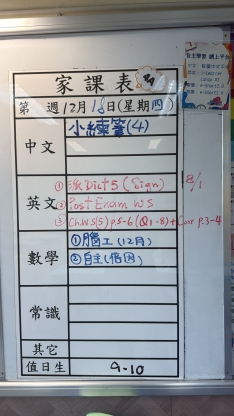 家課表
第 週12月18日(星期四)
中文
小練簿(4)
英文
① 派Dict 5 (Sign) 8/1
② Post Exam WS
③ Ch.WS(5) p.5-6 (Q1-8) + Corr p.3-4
數學
① 腦工(12月)
② 自主(倍因)
常識
其它
值日生
9-10
自主學習網上平台